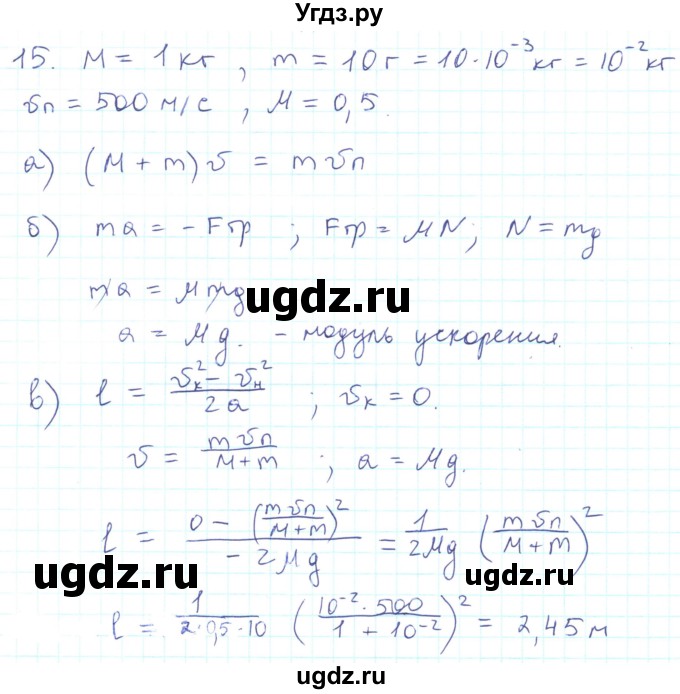 Угдз.ру
15. M = 1 кг , m = 10 г = 10·10⁻³ кг = 10⁻² кг
υп = 500 м/с , μ = 0,5.
а) (M + m) υ = m υп
б) ma = - Fтр ; Fтр = μN ; N = mg
ma = μmg
ugdz.ru
a = μg. - модуль ускорения.
в) l = (υк² - υн²)/2a ; υк = 0.
υ = mυп/(M+m) ; a = μg.
l = (0 - (mυп/(M+m))²)/(-2μg) = 1/(2μg) (mυп/(M+m))²
ugdz.ru ugdz.ru
l = 1/(2·0,5·10) (10⁻²·500/(1 + 10⁻²))² = 2,45 м
ugdz.ru